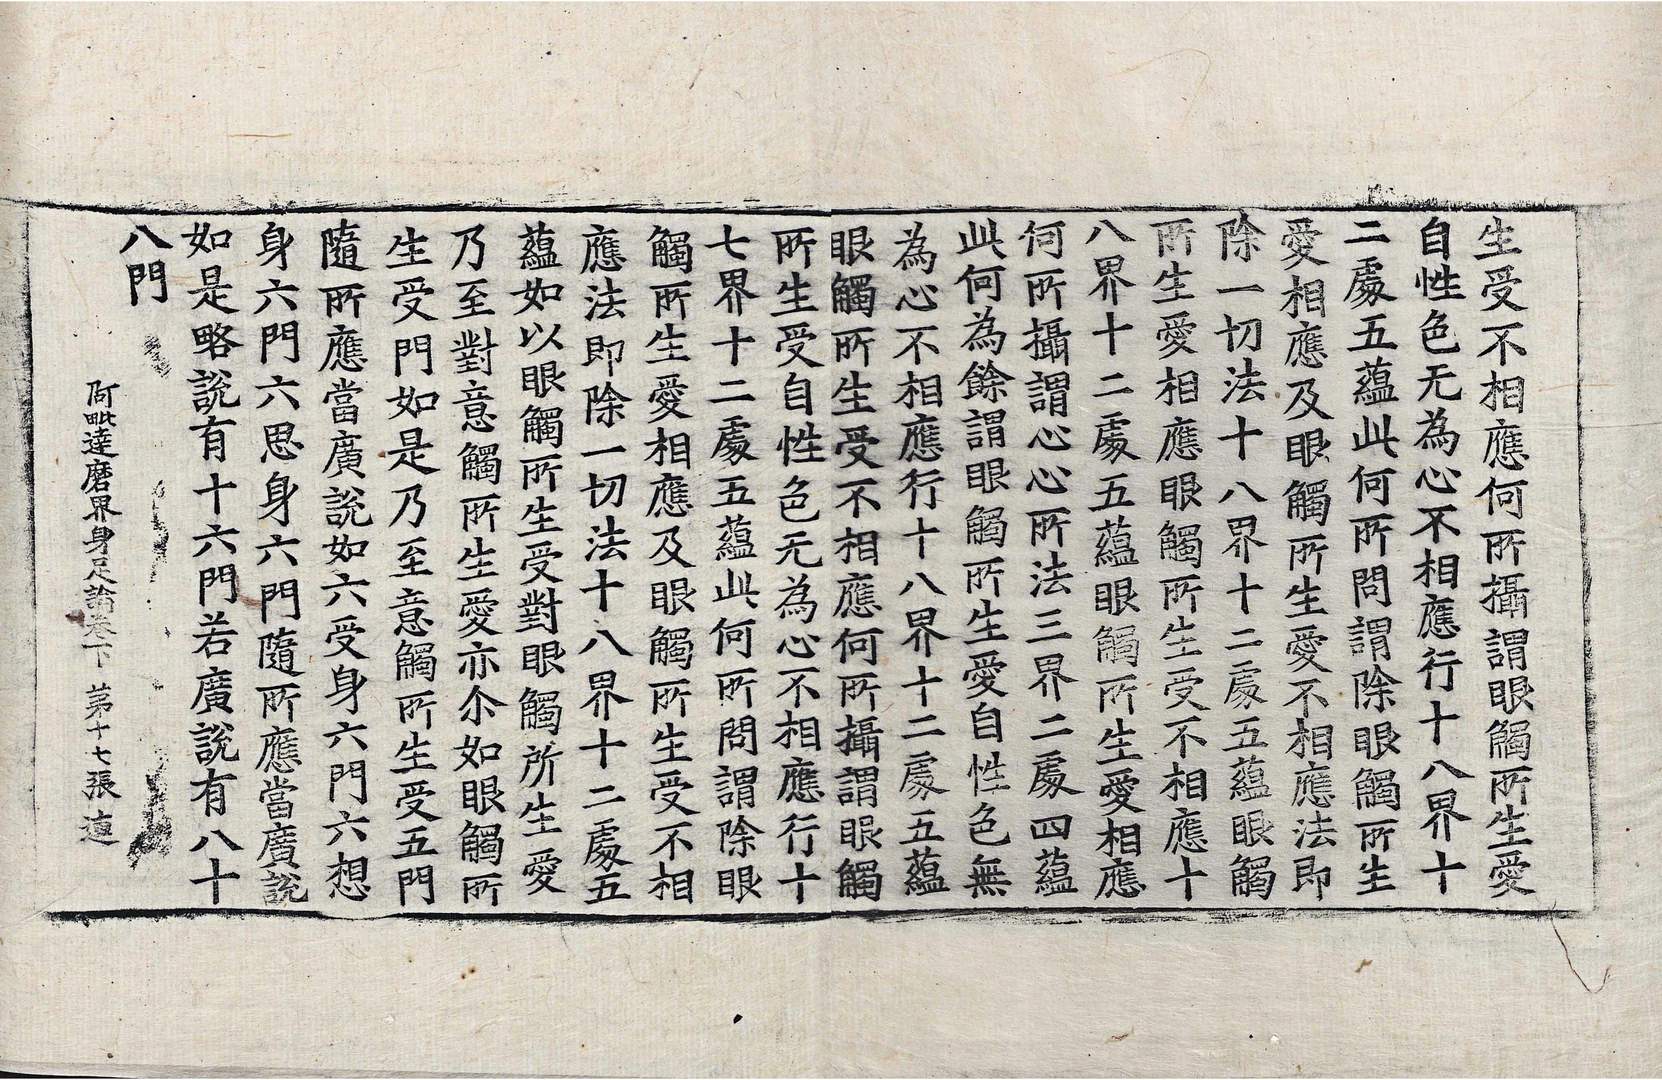 生受不相應何所攝謂眼觸所生愛
自性色无為心不相應行十八界十
二處五蘊此何所問謂除眼觸所生
愛相應及眼觸所生愛不相應法即
除一切法十八界十二處五蘊眼觸
所生愛相應眼觸所生受不相應十
八界十二處五蘊眼觸所生愛相應
何所攝謂心心所法三界二處四蘊
此何為餘謂眼觸所生愛自性色無
為心不相應行十八界十二處五蘊
眼觸所生受不相應何所攝謂眼觸
所生受自性色无為心不相應行十
七界十二處五蘊此何所問謂除眼
觸所生愛相應及眼觸所生受不相
應法即除一切法十八界十二處五
蘊如以眼觸所生受對眼觸所生愛
乃至對意觸所生愛亦尒如眼觸所
生受門如是乃至意觸所生受五門
隨所應當廣說如六受身六門六想
身六門六思身六門隨所應當廣說
如是略說有十六門若廣說有八十
八門
阿毗達磨界身足論卷下 第十七張 直